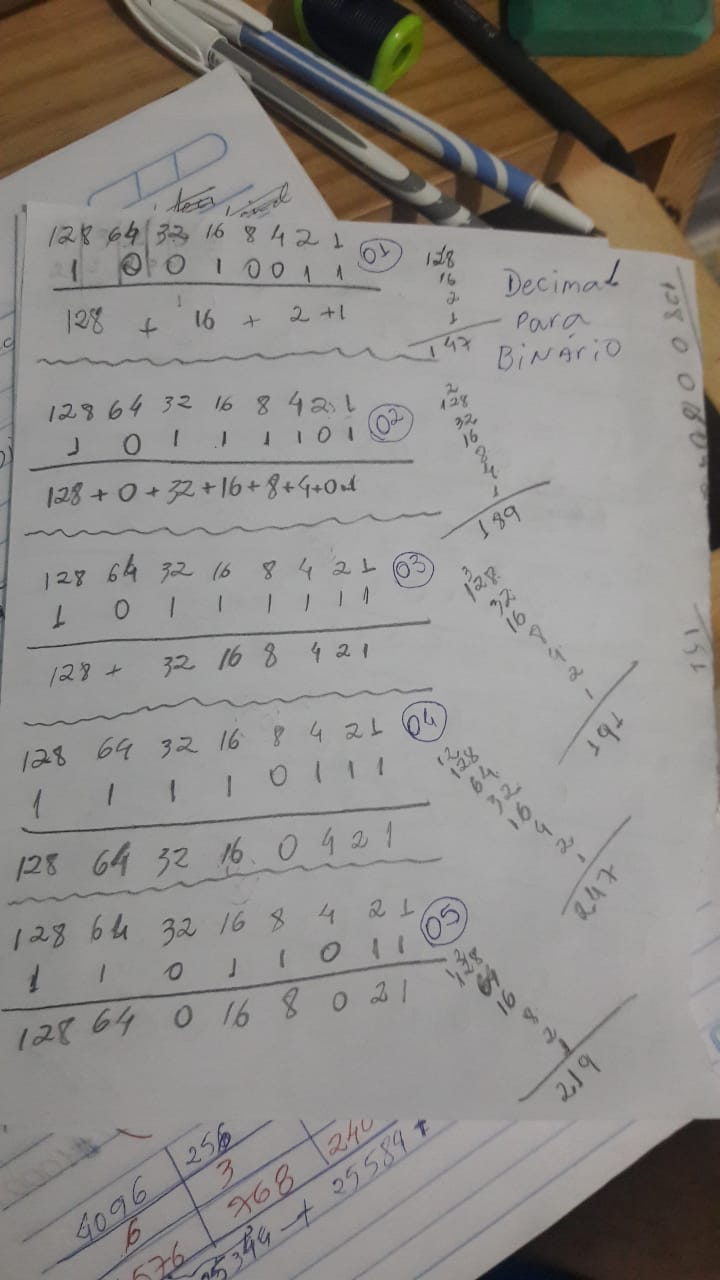 128 64 32 16 8 4 2 1 01
1 0 0 1 0 0 1 1
128 + 16 + 2 +1
128
16
2
1
147
Decimal
Para
BiNÁRiO
128 64 32 16 8 4 2 1 02
1 0 1 1 1 1 0 1
128 + 0 + 32 + 16 + 8 + 4 + 0 1
2
128
32
16
8
4
1
189
128 64 32 16 8 4 2 1 03
1 0 1 1 1 1 1 1
128 + 32 16 8 4 2 1
3
128
32
16
8
4
2
1
191
128 64 32 16 8 4 2 1 04
1 1 1 1 0 1 1 1
128 64 32 16 0 4 2 1
12
128
64
32
16
4
2
1
247
128 64 32 16 8 4 2 1 05
1 1 0 1 1 0 1 1
128 64 0 16 8 0 2 1
128
64
16
8
2
1
219
4096 256
6 3
576 768 240
25584 +